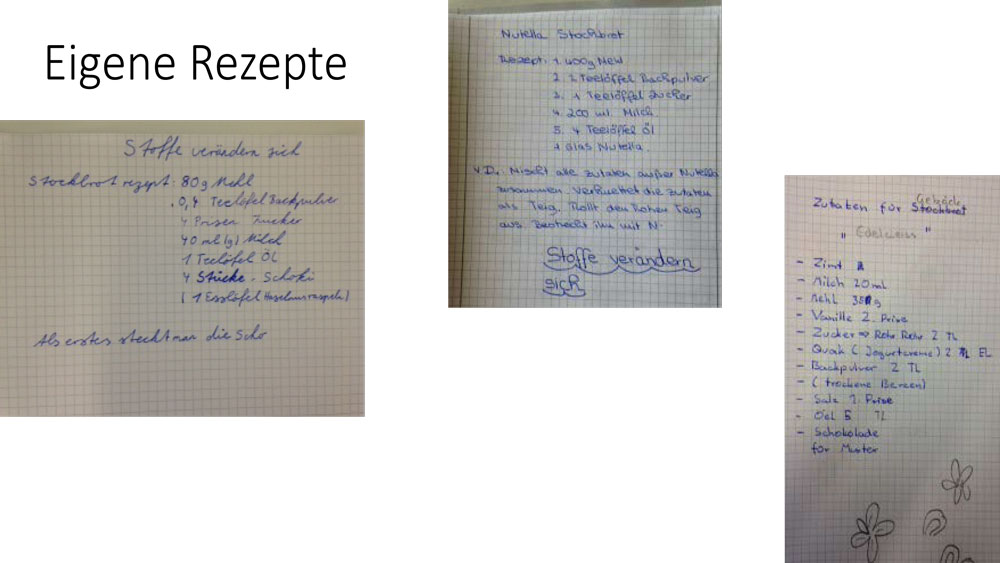 Eigene Rezepte
Stoffe verändern sich
Stockbrot rezept: 80g Mehl
0,4 Teelöfel Backpulver
4 Prisen Zucker
40 ml (g) Milch
1 Teelöfel ÖL
4 Stücke Schoki
( 1 Esslöfel Haselnussraspeln)
Als erstes stecht man die Scho
Nutella Stockbrot
Rezept: 1. 400g Mehl
2. 2 Teelöffel Backpulver
3. 1 Teelöffel Zucker
4. 200 ml. Milch
5. 4 Teelöffel Öl
1 Glas Nutella
V D. Mischt alle zutaten außer Nutella
zusammen. Verknettet die zutaten
als Teig. Rollt den Rohen Teig
aus. Bestreicht ihn mit N.
Stoffe verändern
sich
Zutaten für Stockbrot Gebäck
" Edelweiss "
- Zimt
- Milch 20ml
- Mehl g
- Vanille 2. Prise
- Zucker => Rohr Rohr 2 TL
- Quak ( Jogurtcreme) 2 EL
- Backpulver 2 TL
- ( trockene Beeren)
- Salz 1. Prise
- Oel 5 TL
- Schokolade
für Muster